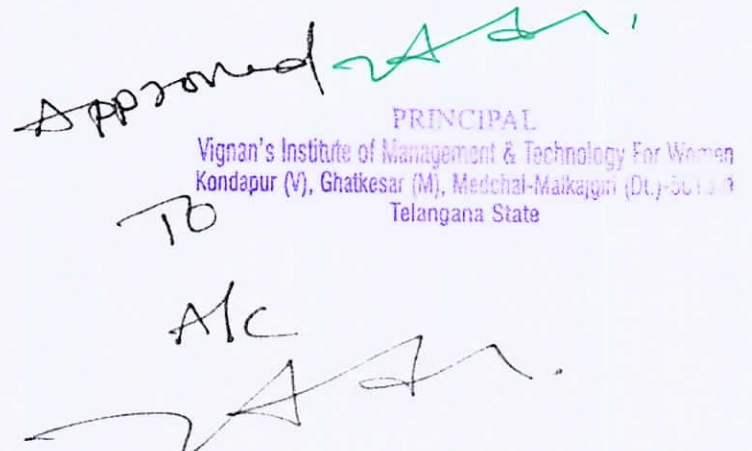 Approved
PRINCIPAL
Vignan's Institute of Management & Technology For Women
Kondapur (V), Ghatkesar (M), Medchal-Malkajgiri (Dt.)-
Telangana State
To
A/c